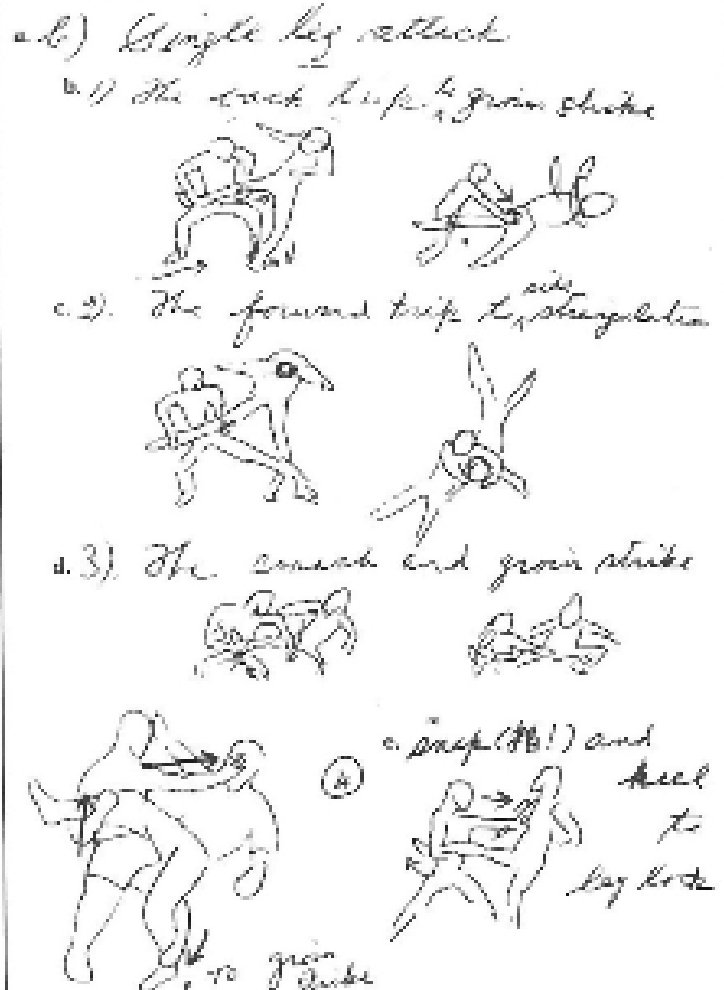 b) Single leg attack
b. 1) The back trip to groin strike
c. 2). The forward trip to side strangulation
d. 3) The and groin strike
e. snap ( !) and
heel
to
leg lock
A
To groin
strike